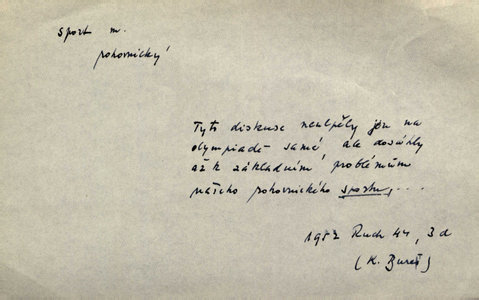 sport m.
pohovnický
Tyto diskuse neulpěly jen na
olympiadě samé, ale dosáhly
až k základním problémům
našeho pohovnického sportu, ...
1952 Ruch 44, 3 d
(K. Bureš)